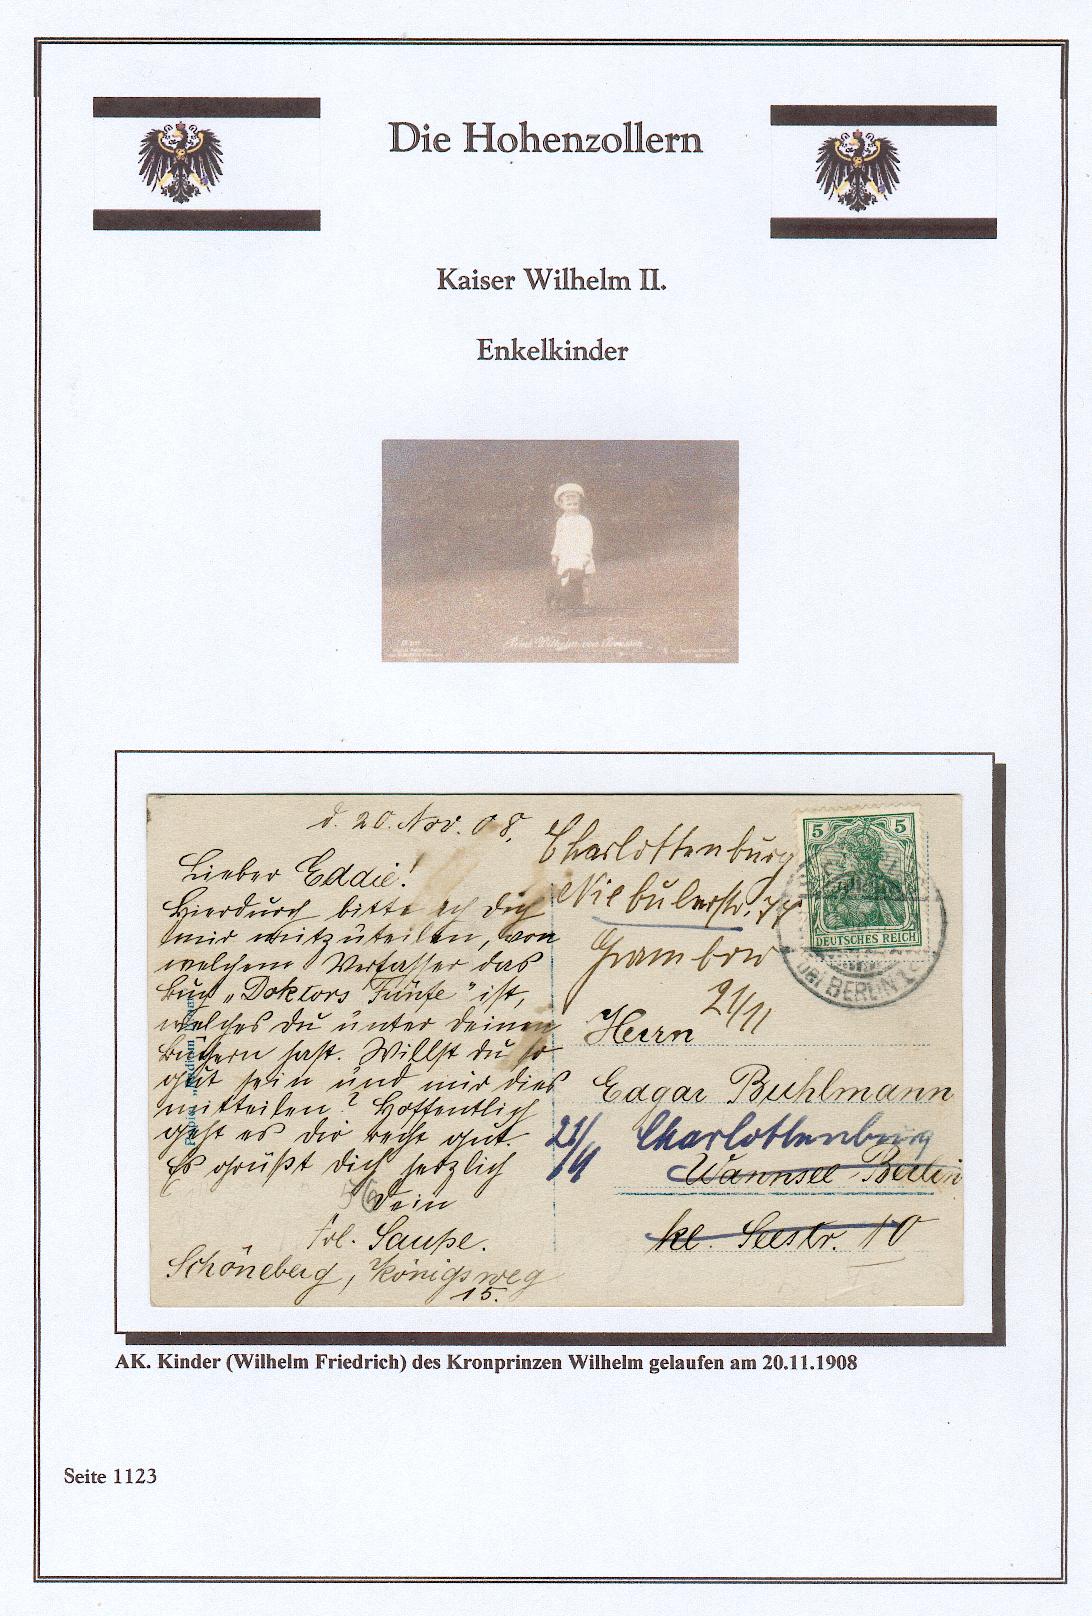 Die Hohenzollern
Kaiser Wilhelm II.
Enkelkinder
Prinz Wilhelm von Preussen
d. 20. Nov. 08.
Lieber Eddie!
Hierdurch bitte ich dich
mir mitzuteilen, von
welchem Verfasser das
Buch „Doktors Fünfe" ist,
welches du unter deinen
Büchern hast. Willst du so
gut sein und mir dies
mitteilen? Hoffentlich
geht es dir recht gut.
Es grüßt dich herzlich
56
Dein
Frl. Saupe.
Schöneberg, Königsweg
15.
Charlottenburg
Niebulerstr. 77
Grambow
21/11
Herrn
Edgar Buhlmann
21/11 Charlottenburg
Wannsee Berlin
kl. Seestr. 10
5 5
DEUTSCHES REICH
bei BERLIN
AK. Kinder (Wilhelm Friedrich) des Kronprinzen Wilhelm gelaufen am 20.11.1908
Seite 1123